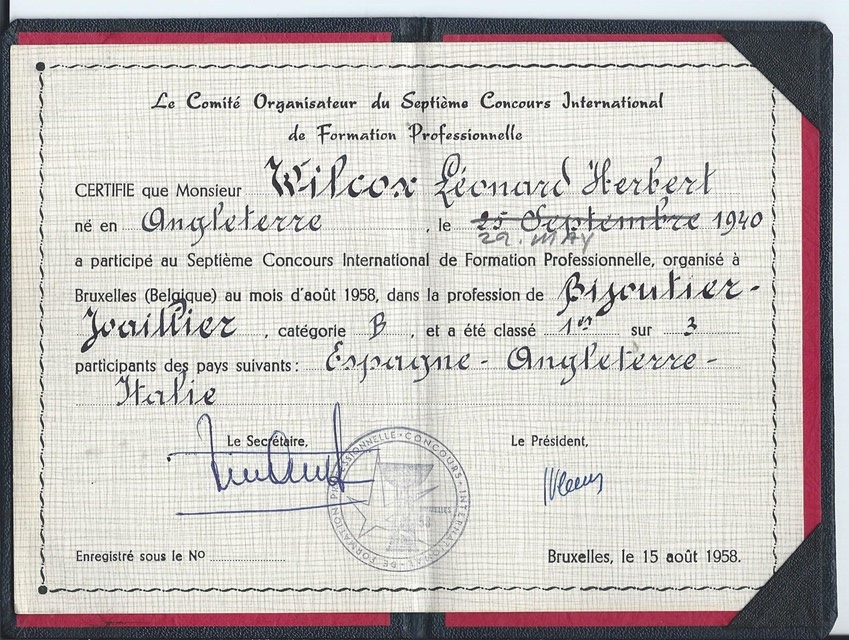 Le Comité Organisateur du Septième Concours International
de Formation Professionnelle
CERTIFIE que Monsieur Wilcox Léonard Herbert
né en Angleterre, le 25 Septembre 1940
29. MAY
a participé au Septième Concours International de Formation Professionnelle, organisé à
Bruxelles (Belgique) au mois d'août 1958, dans la profession de Bijoutier-
Joaillier, catégorie B, et a été classé 1er sur 3
participants des pays suivants: Espagne - Angleterre -
Italie
Le Secrétaire,
Le Président,
CONCOURS · INTERNATIONAL · DE FORMATION PROFESSIONNELLE ·
Enregistré sous le No
Bruxelles, le 15 août 1958.